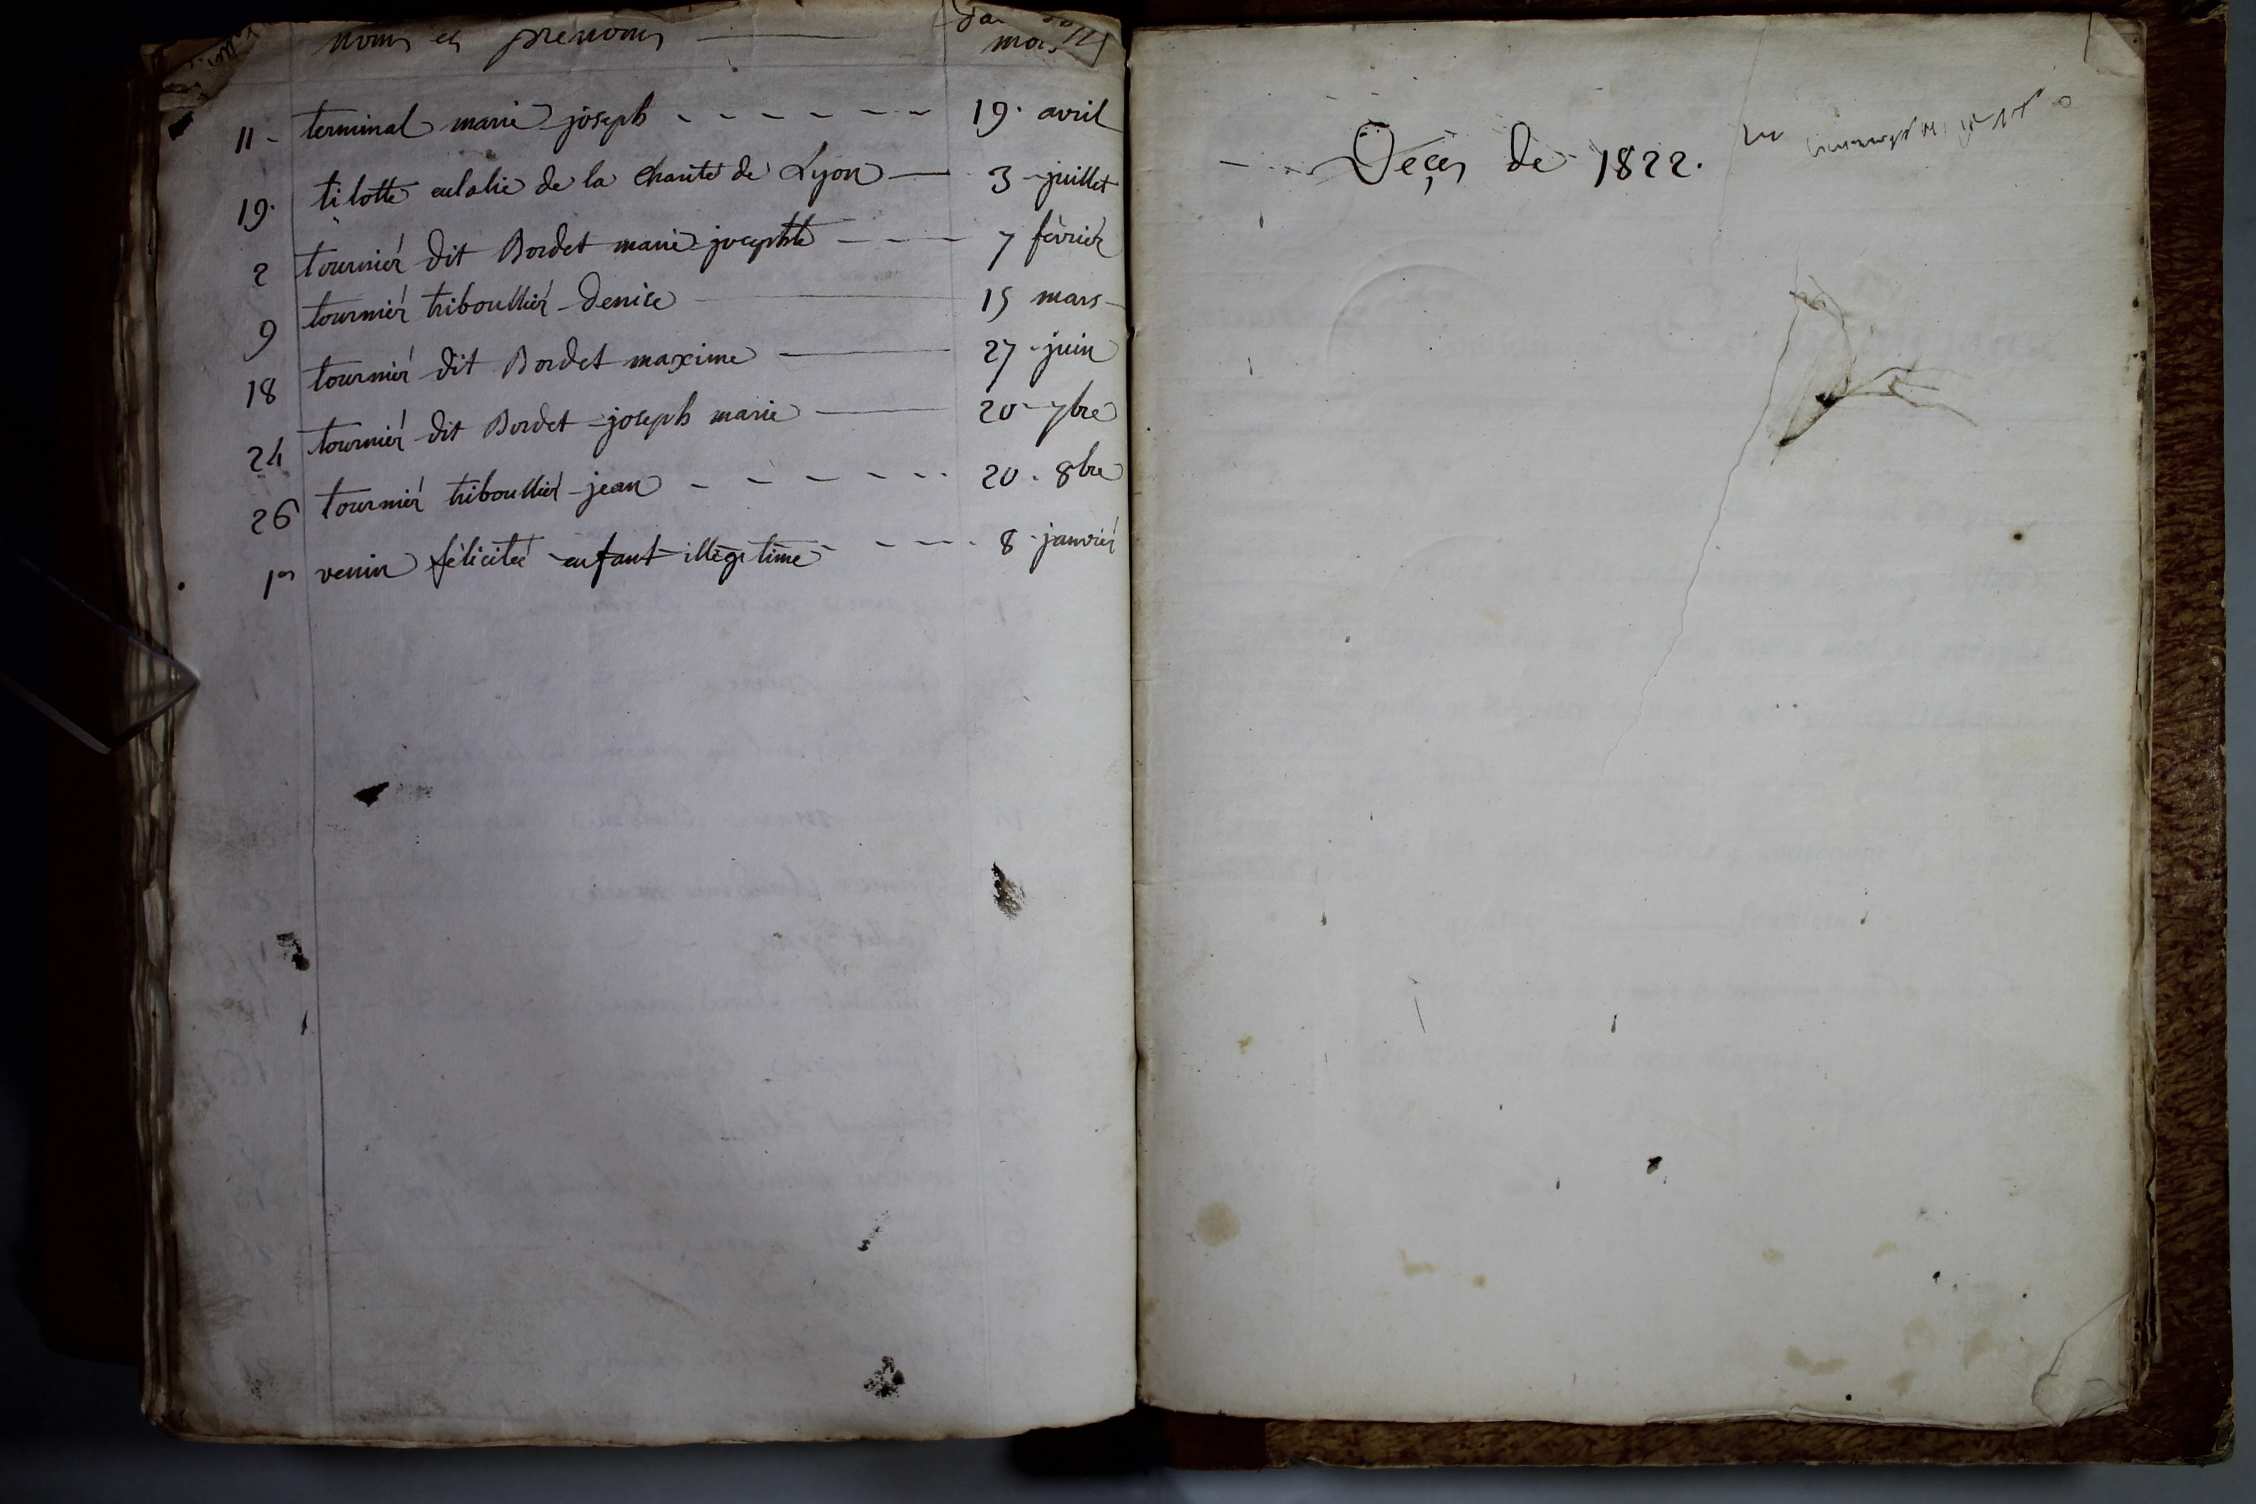 noms et prénoms
mois
11 - terminal marie joseph - - - - - - 19. avril
19. tilotte eulalie de la charité de Lyon — 3 - juillet
2 tournier dit Bordet marie josephte — - — 7 février
9 tournier triboullier - denise — 15 mars -
18 tournier dit Bordet maxime — 27 - juin
24 tournier dit Bordet - joseph marie — 20 - 7bre
26 tournier triboullier - jean - - - - - - 20 . 8bre
1er venin félicité - enfant - illégitime - - - - 8 - janvier
Décès de 1822.